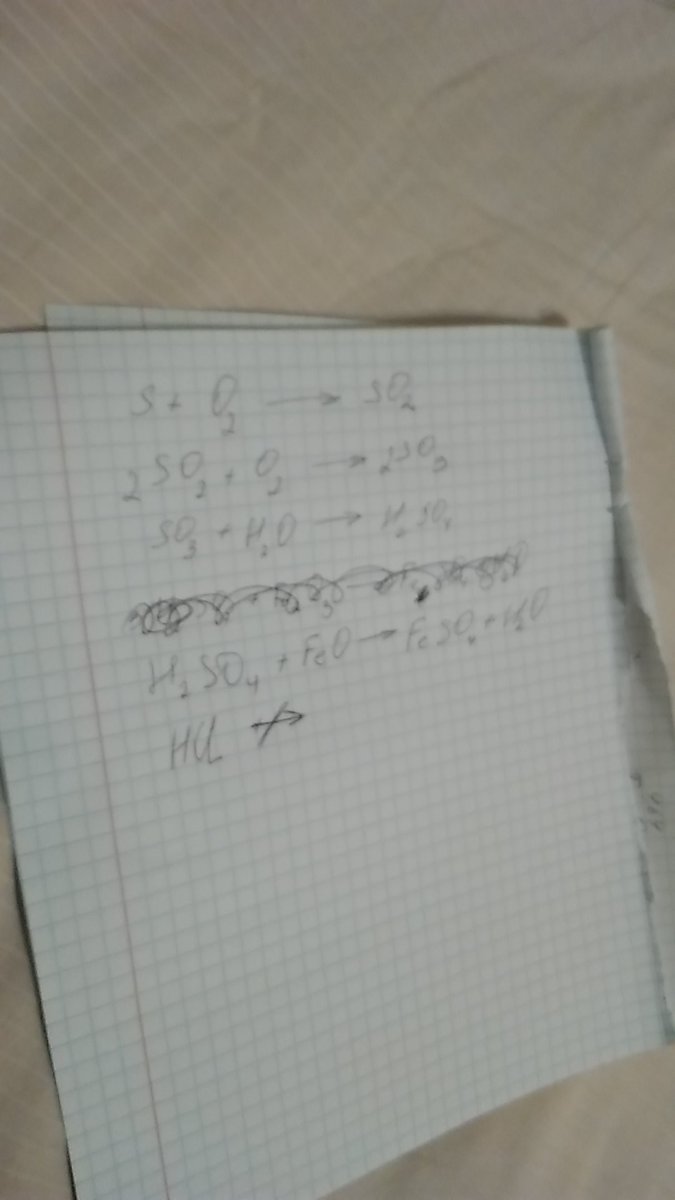 S + O₂ → SO₂
2SO₂ + O₂ → 2SO₃
SO₃ + H₂O → H₂SO₄
H₂SO₄ + FeO → FeSO₄ + H₂O
HCl ↛